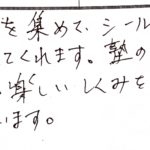 を集めて、シール
てくれます。塾の
楽しいしくみを
います。